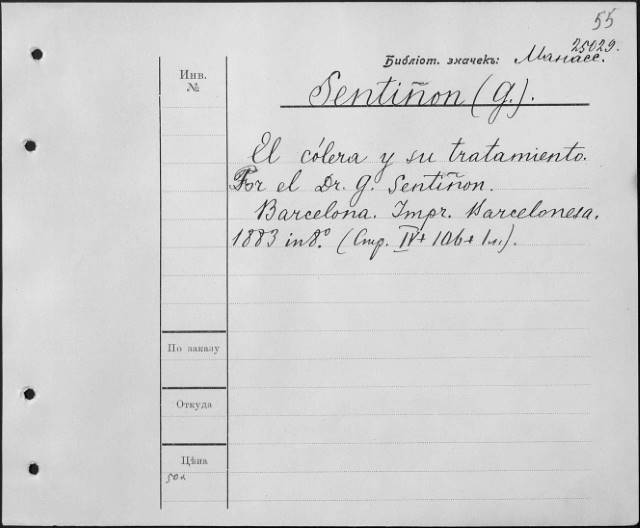 55
25029.
Библіот. значекъ: Манасс.
Инв.
№
Sentiñon (G.).
El cólera y su tratamiento.
Por el Dr. G. Sentiñon.
Barcelona. Impr. Barcelonesa.
1883 in 8.° (Стр. IV + 106 + 1 л.).
По заказу
Откуда
Цѣна
50к